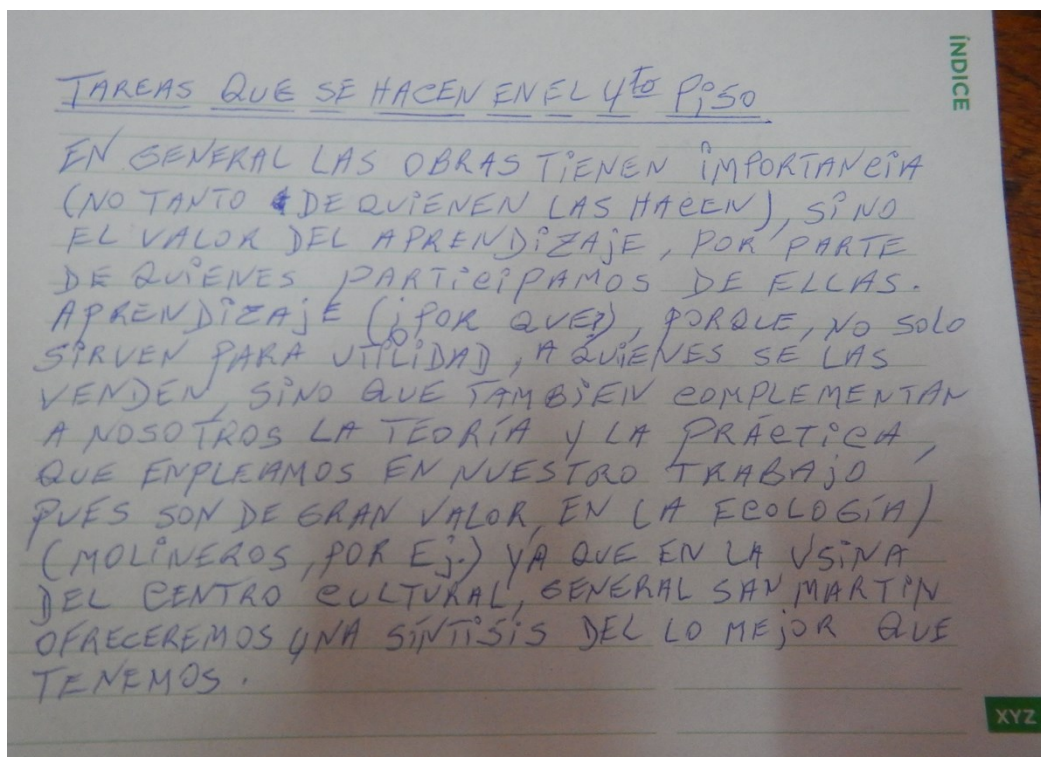 ÍNDICE
TAREAS QUE SE HACEN EN EL 4to PISO
EN GENERAL LAS OBRAS TIENEN IMPORTANCIA
(NO TANTO DE QUIENEN LAS HACEN), SINO
EL VALOR DEL APRENDIZAJE, POR PARTE
DE QUIENES PARTICIPAMOS DE ELLAS.
APRENDIZAJE (¿POR QUE?), PORQUE, NO SOLO
SIRVEN PARA UTILIDAD, A QUIENES SE LAS
VENDEN, SINO QUE TAMBIEN COMPLEMENTAN
A NOSOTROS LA TEORÍA Y LA PRÁCTICA,
QUE ENPLEAMOS EN NUESTRO TRABAJO
PUES SON DE GRAN VALOR, EN LA ECOLOGÍA)
(MOLINEROS, POR EJ.) YA QUE EN LA USINA
DEL CENTRO CULTURAL, GENERAL SAN MARTIN
OFRECEREMOS UNA SÍNTISIS DEL LO MEJOR QUE
TENEMOS.
XYZ